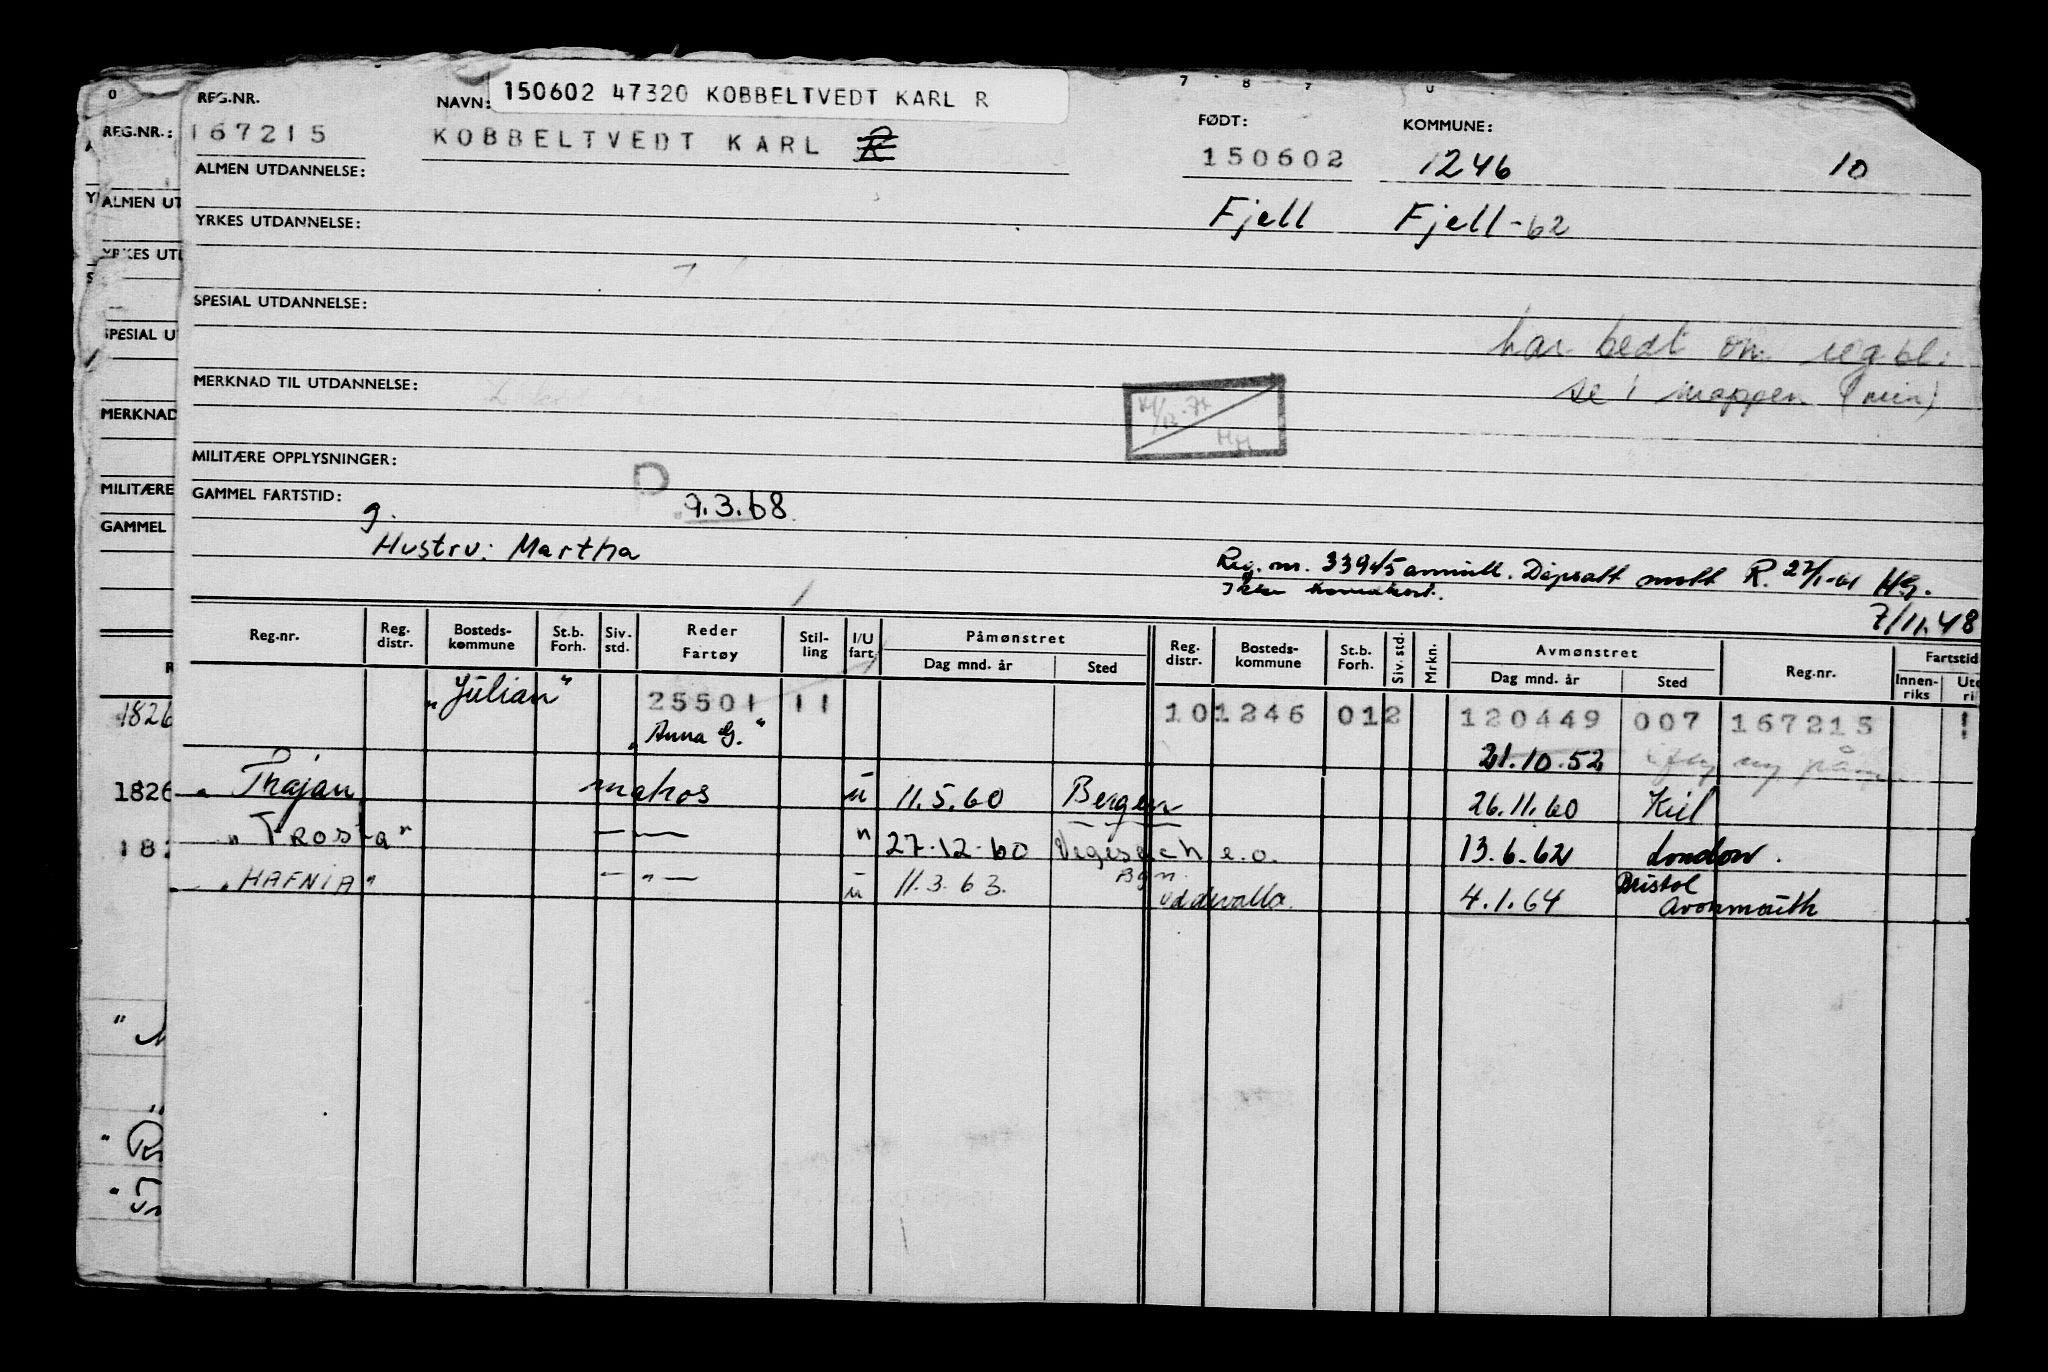 150602 47320 KOBBELTVEDT KARL R
REG.NR. NAVN: FØDT: KOMMUNE:
167215 KOBBELTVEDT KARL R 150602 1246 10
ALMEN UTDANNELSE:
Fjell Fjell-62
YRKES UTDANNELSE:
SPESIAL UTDANNELSE:
har bedt om regbl.
se i mappen (min)
MERKNAD TIL UTDANNELSE:
HH
MILITÆRE OPPLYSNINGER:
GAMMEL FARTSTID: D 9.3.68
g.
Hustru: Martha
Reg. nr. 33945 annull. Døpsatt R. HG.
Ikke
7/11.48
Reg.nr. Reg. distr. Bosteds-kommune St.b. Forh. Siv. std. Reder Fartøy Stil-ling I/U fart Påmønstret Dag mnd. år Sted Reg. distr. Bosteds-kommune St.b. Forh. Siv. std. Mrkn. Avmønstret Dag mnd. år Sted Reg.nr. Fartstid Innen-riks Ute ri
"Julian" 25501 11 101246 012 120449 007 167215
"Anna G." 21.10.52
Thajan makos u 11.5.60 Bergen 26.11.60 Kiel
"Trosta" — — " 27.12.60 Vegesach e.o. 13.6.62 London.
"HAFNIA" — " — u 11.3.63. Bgn. Uddevalla 4.1.64 Bristol
Avonmouth
REG.NR.:
ALMEN UT
YRKES UTD
SPESIAL U
MERKNAD
MILITÆRE
GAMMEL
1826
1826
182